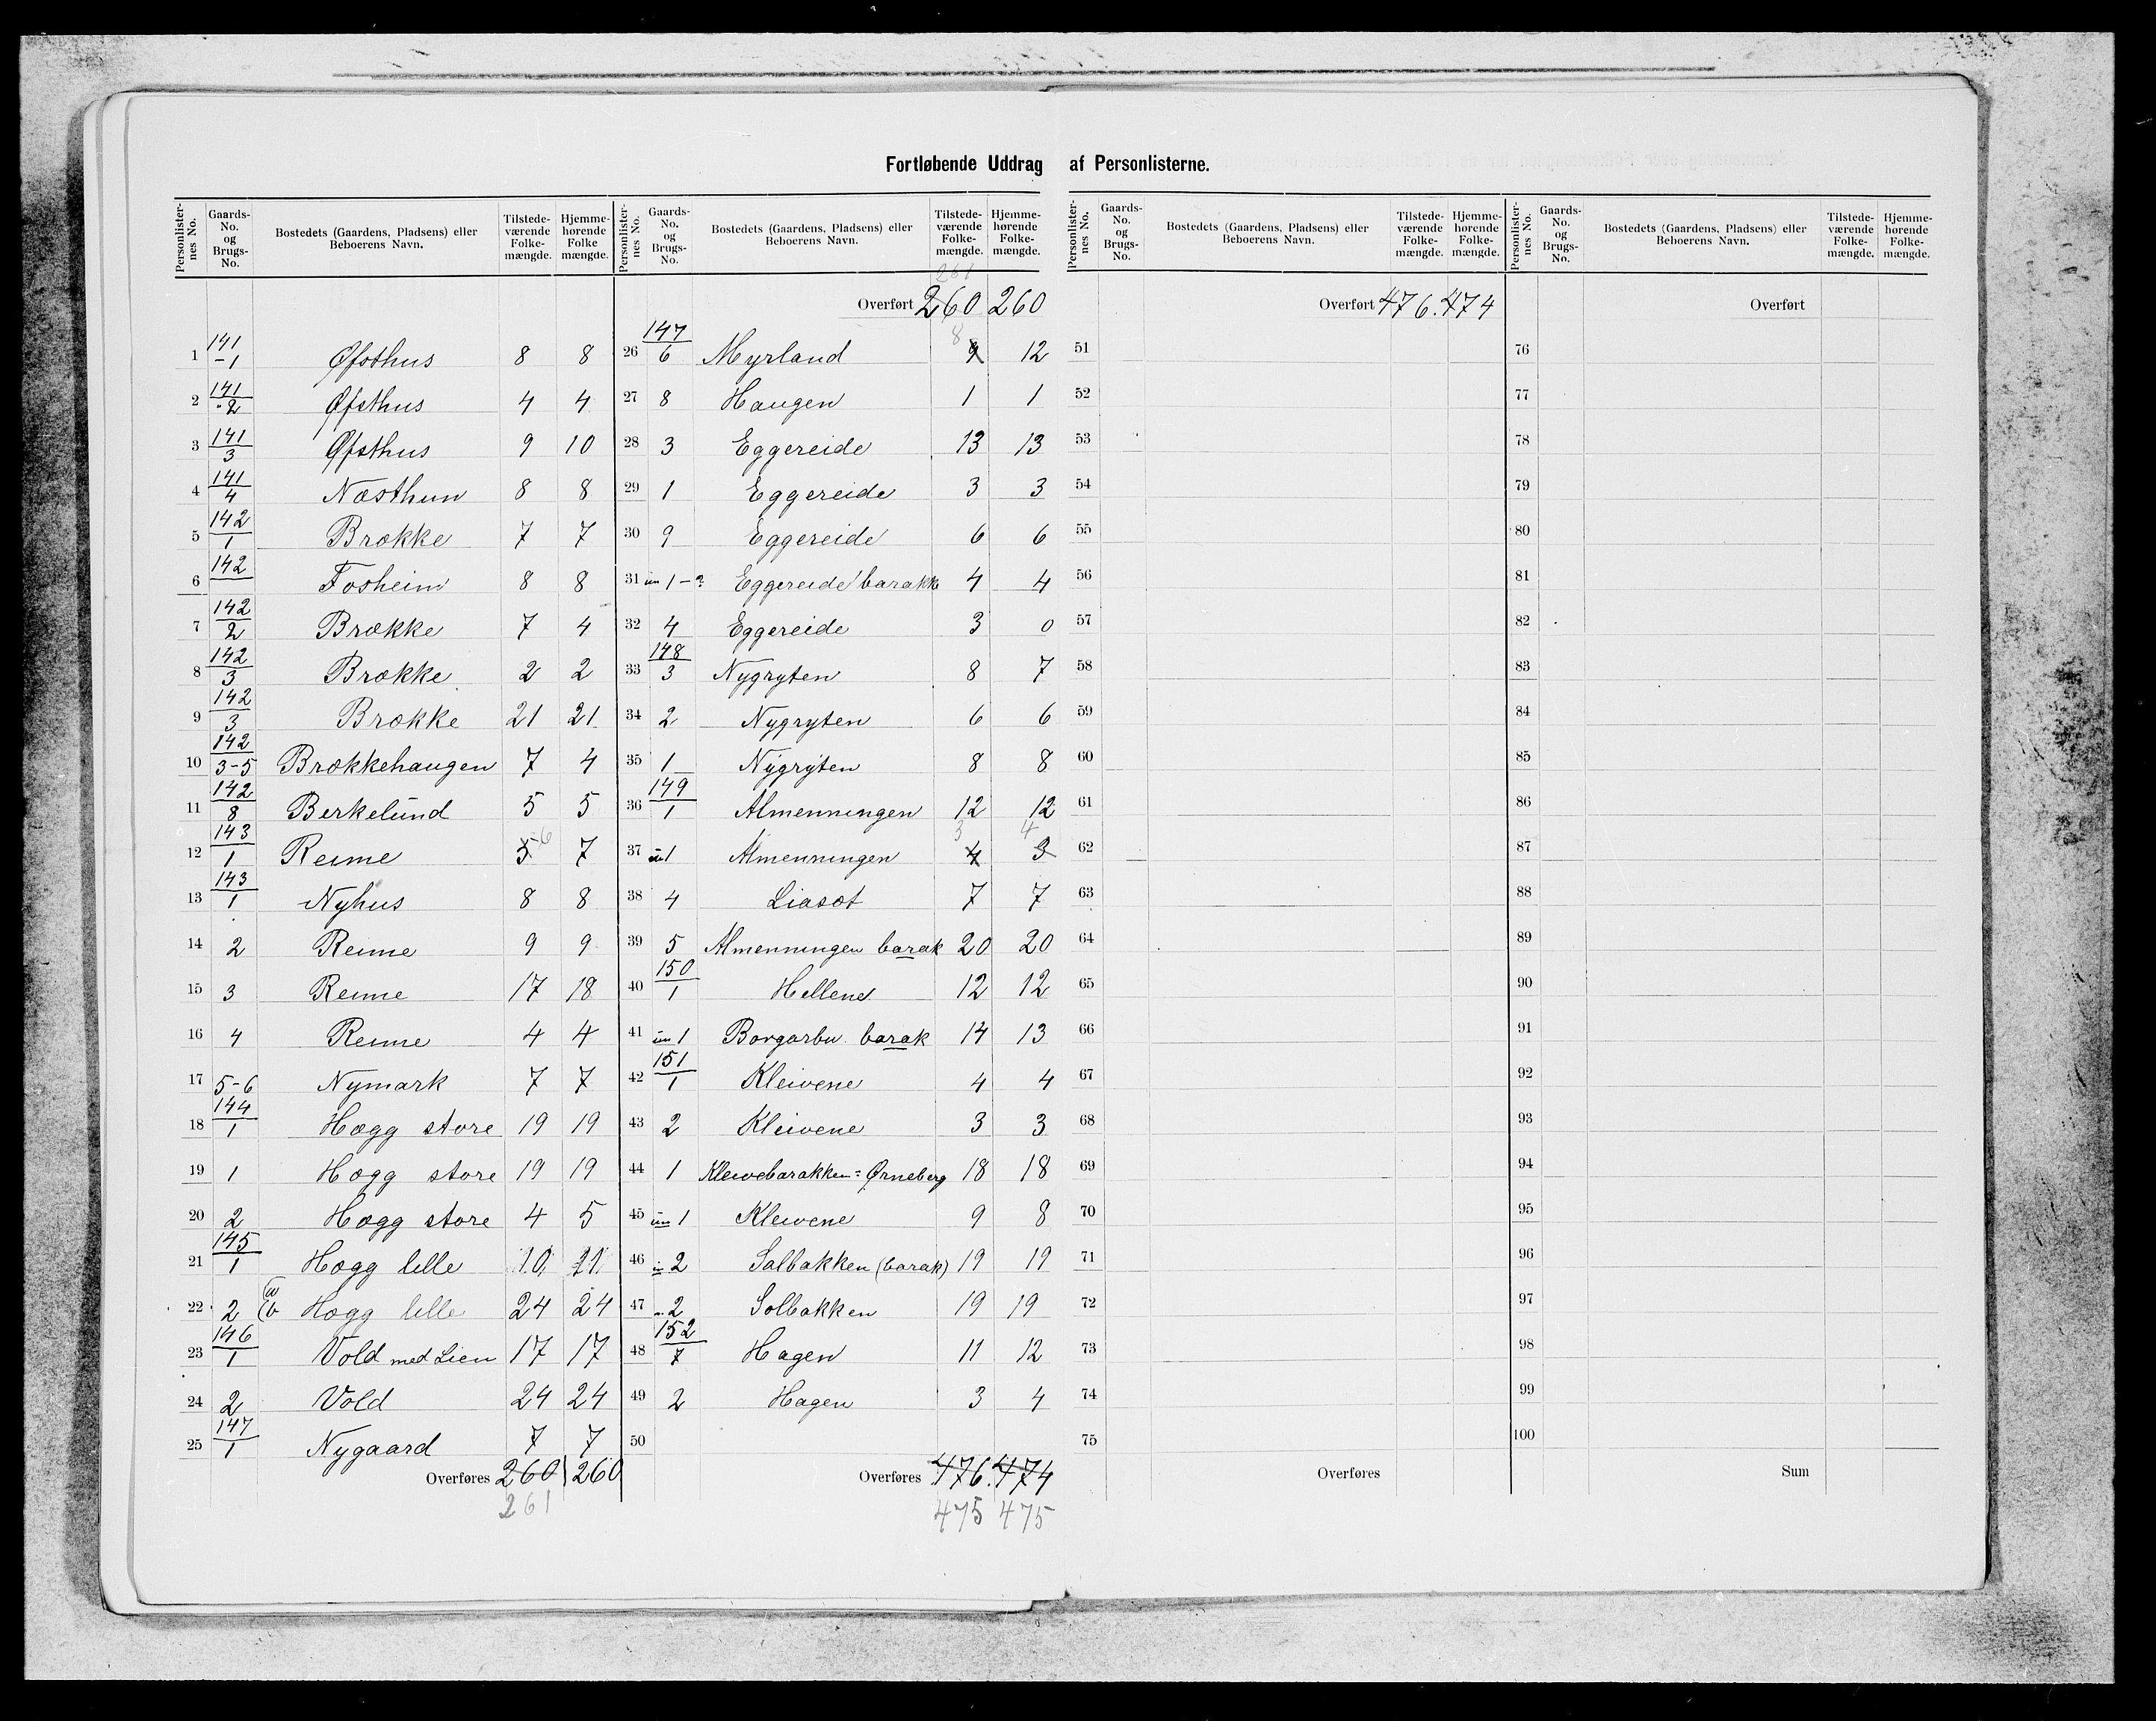 Fortløbende Uddrag af Personlisterne.
Personlister-nes No. | Gaards-No. og Brugs-No. | Bostedets (Gaardens, Pladsens) eller Beboerens Navn. | Tilstede-værende Folke-mængde. | Hjemme-hørende Folke mængde.
1 141/-1 Øfsthus 8 8
2 141/2 Øfsthus 4 4
3 141/3 Øfsthus 9 10
4 141/4 Næsthun 8 8
5 142/1 Brække 7 7
6 142 Fosheim 8 8
7 142/2 Brække 7 4
8 142/3 Brække 2 2
9 142/3 Brække 21 21
10 142/3-5 Brækkehaugen 7 4
11 142/8 Berkelund 5 5
12 143/1 Reime 5 6 7
13 143/1 Nyhus 8 8
14 2 Reime 9 9
15 3 Reime 17 18
16 4 Reime 4 4
17 5-6 Nymark 7 7
18 144/1 Hægg store 19 19
19 1 Hægg store 19 19
20 2 Hægg store 4 5
21 145/1 Hægg lille 10 11
22 2 Hægg lille 24 24
23 146/1 Vold med Lien 17 17
24 2 Vold 24 24
25 147/1 Nygaard 7 7
Overføres 260 260
261
Personlister-nes No. | Gaards-No. og Brugs-No. | Bostedets (Gaardens, Pladsens) eller Beboerens Navn. | Tilstede-værende Folke-mængde. | Hjemme-hørende Folke-mængde.
261
Overført 260 260
26 147/6 Myrland 8 9 12
27 8 Haugen 1 1
28 3 Eggereide 13 13
29 1 Eggereide 3 3
30 9 Eggereide 6 6
31 1-2 Eggereide barakke 4 4
32 4 Eggereide 3 0
33 148/3 Nygryten 8 7
34 2 Nygryten 6 6
35 1 Nygryten 8 8
36 149/1 Almenningen 12 12
37 1 Almenningen 3 4 4 3
38 4 Liaset 7 7
39 5 Almenningen barak 20 20
40 150/1 Hellene 12 12
41 1 Borgarbu barak 14 13
42 151/1 Kleivene 4 4
43 2 Kleivene 3 3
44 1 Kleivebarakken = Ørneberg 18 18
45 1 Kleivene 9 8
46 2 Solbakken (barak) 19 19
47 2 Solbakken 19 19
48 152/1 Hagen 11 12
49 2 Hagen 3 4
50
Overføres 476. 474
475 475
Personlister-nes No. | Gaards-No. og Brugs-No. | Bostedets (Gaardens, Pladsens) eller Beboerens Navn. | Tilstede-værende Folke-mængde. | Hjemme-hørende Folke-mængde.
Overført 476. 474
51
52
53
54
55
56
57
58
59
60
61
62
63
64
65
66
67
68
69
70
71
72
73
74
75
Overføres
Personlister-nes No. | Gaards-No. og Brugs-No. | Bostedets (Gaardens, Pladsens) eller Beboerens Navn. | Tilstede-værende Folke-mængde. | Hjemme-hørende Folke-mængde.
Overført
76
77
78
79
80
81
82
83
84
85
86
87
88
89
90
91
92
93
94
95
96
97
98
99
100
Sum